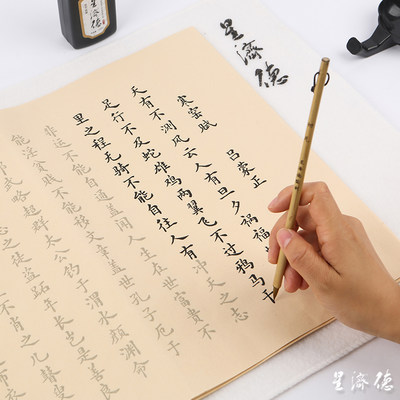 星濟德
寒窑赋
吕蒙正
天有不测风云人有旦夕祸福
足行不及蛇雄鸡两翼飞不过鸦马千
里之程无骑不能自往人有冲天之志
非运不能自通盖闻人生在世富贵不
能淫贫贱不能移文章盖世孔子厄于
邦武略超群太公钓于渭水颜渊命
之徒盗跖年长岂是善良
不肖之儿瞽叟
星濟德